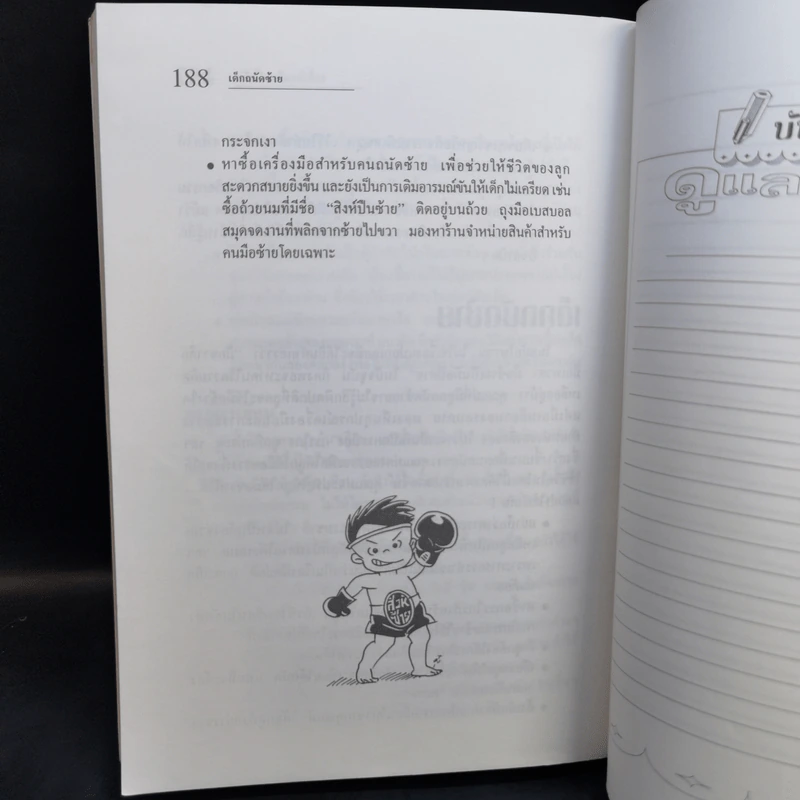 188 เด็กถนัดซ้าย
กระจกเงา
● หาซื้อเครื่องมือสำหรับคนถนัดซ้าย เพื่อช่วยให้ชีวิตของลูก
สะดวกสบายยิ่งขึ้น และยังเป็นการเติมอารมณ์ขันให้เด็กไม่เครียด เช่น
ซื้อถ้วยนมที่มีชื่อ “สิงห์ปืนซ้าย” ติดอยู่บนถ้วย ถุงมือเบสบอล
สมุดจดงานที่พลิกจากซ้ายไปขวา มองหาร้านจำหน่ายสินค้าสำหรับ
คนมือซ้ายโดยเฉพาะ
สิงห์
ซ้าย
ดูแล